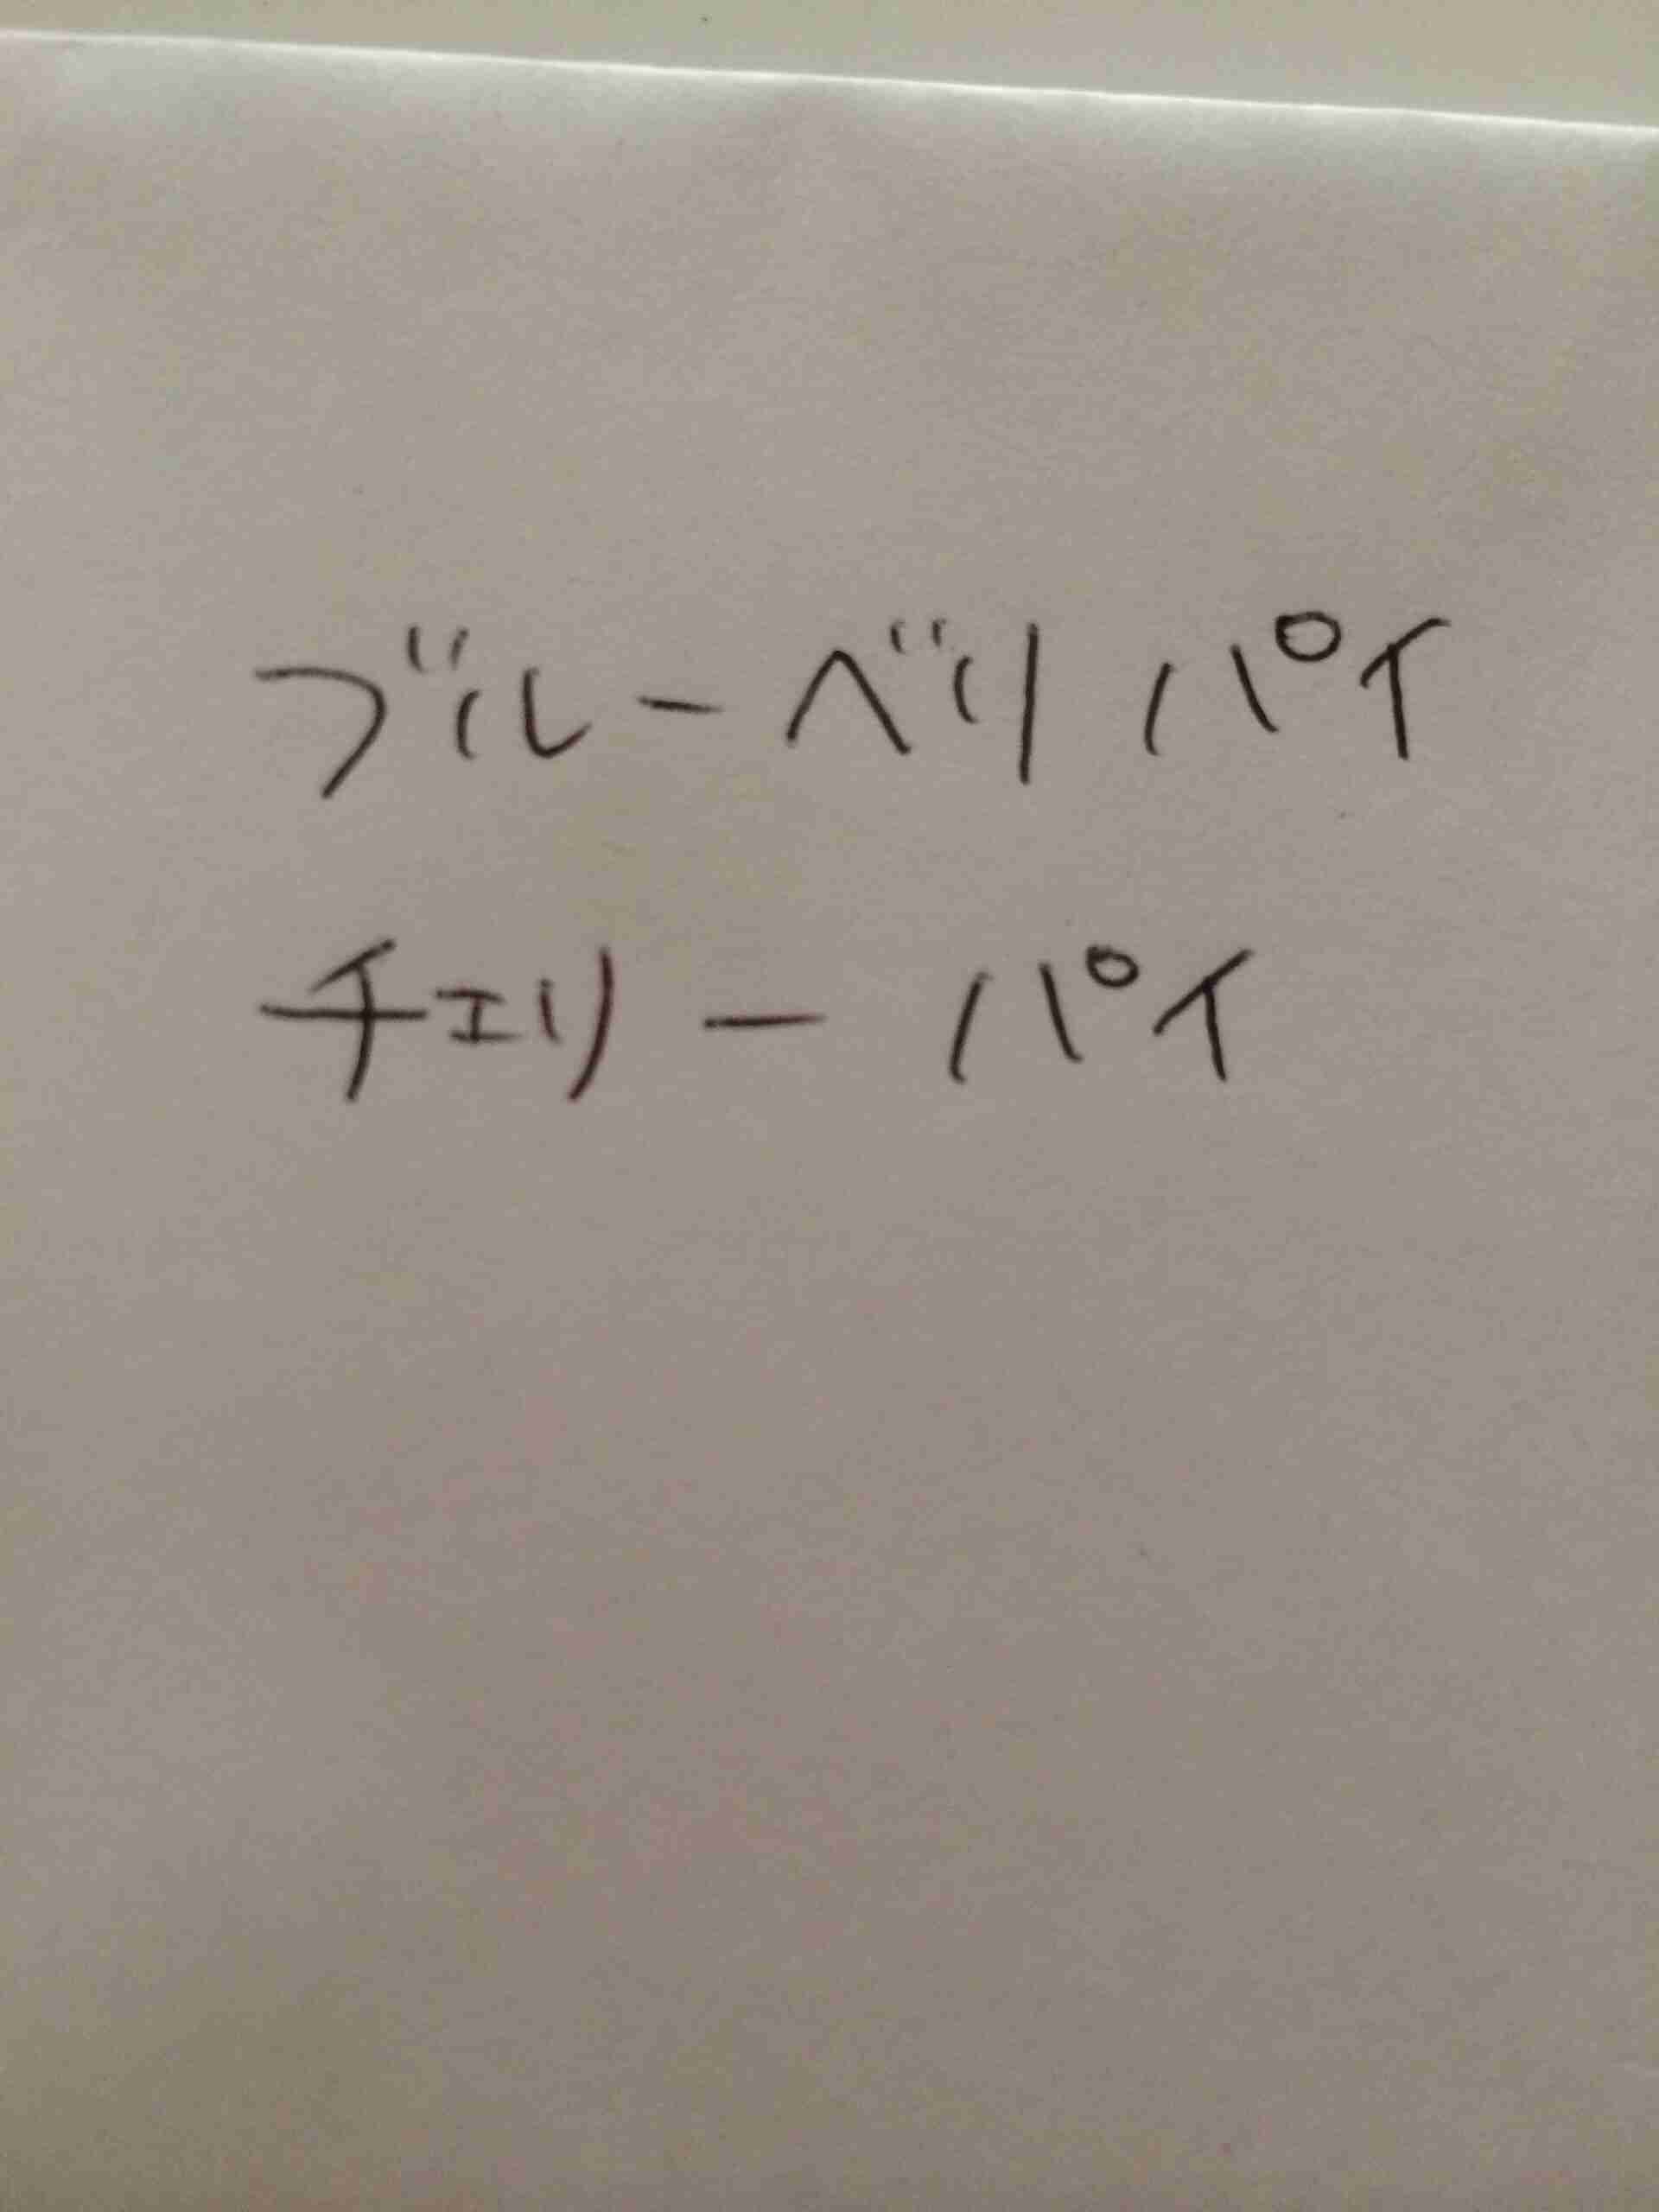 ブルーベリ パイ
チェリー パイ